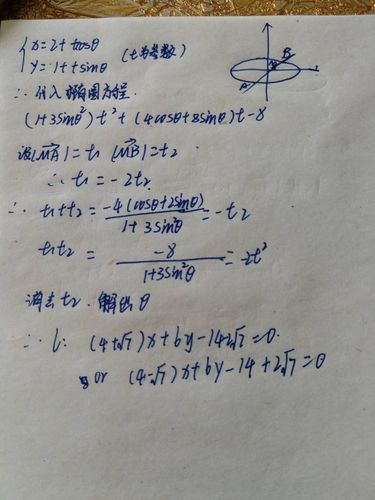 {x=2+tcosθ
y=1+tsinθ (t为参数)
∴ 代入椭圆方程.
(1+3sinθ²)t²+(4cosθ+8sinθ)t-8
设|MA|=t₁ |MB|=t₂
∴ t₁=-2t₂
∴ t₁+t₂=-4(cosθ+2sinθ)/1+3sin²θ=-t₂
t₁t₂=-8/1+3sin²θ=-2t²
消去t₂.解出θ
∴ l: (4+√7)x+6y-14-2√7=0.
or (4-√7)x+6y-14+2√7=0
A
M
B